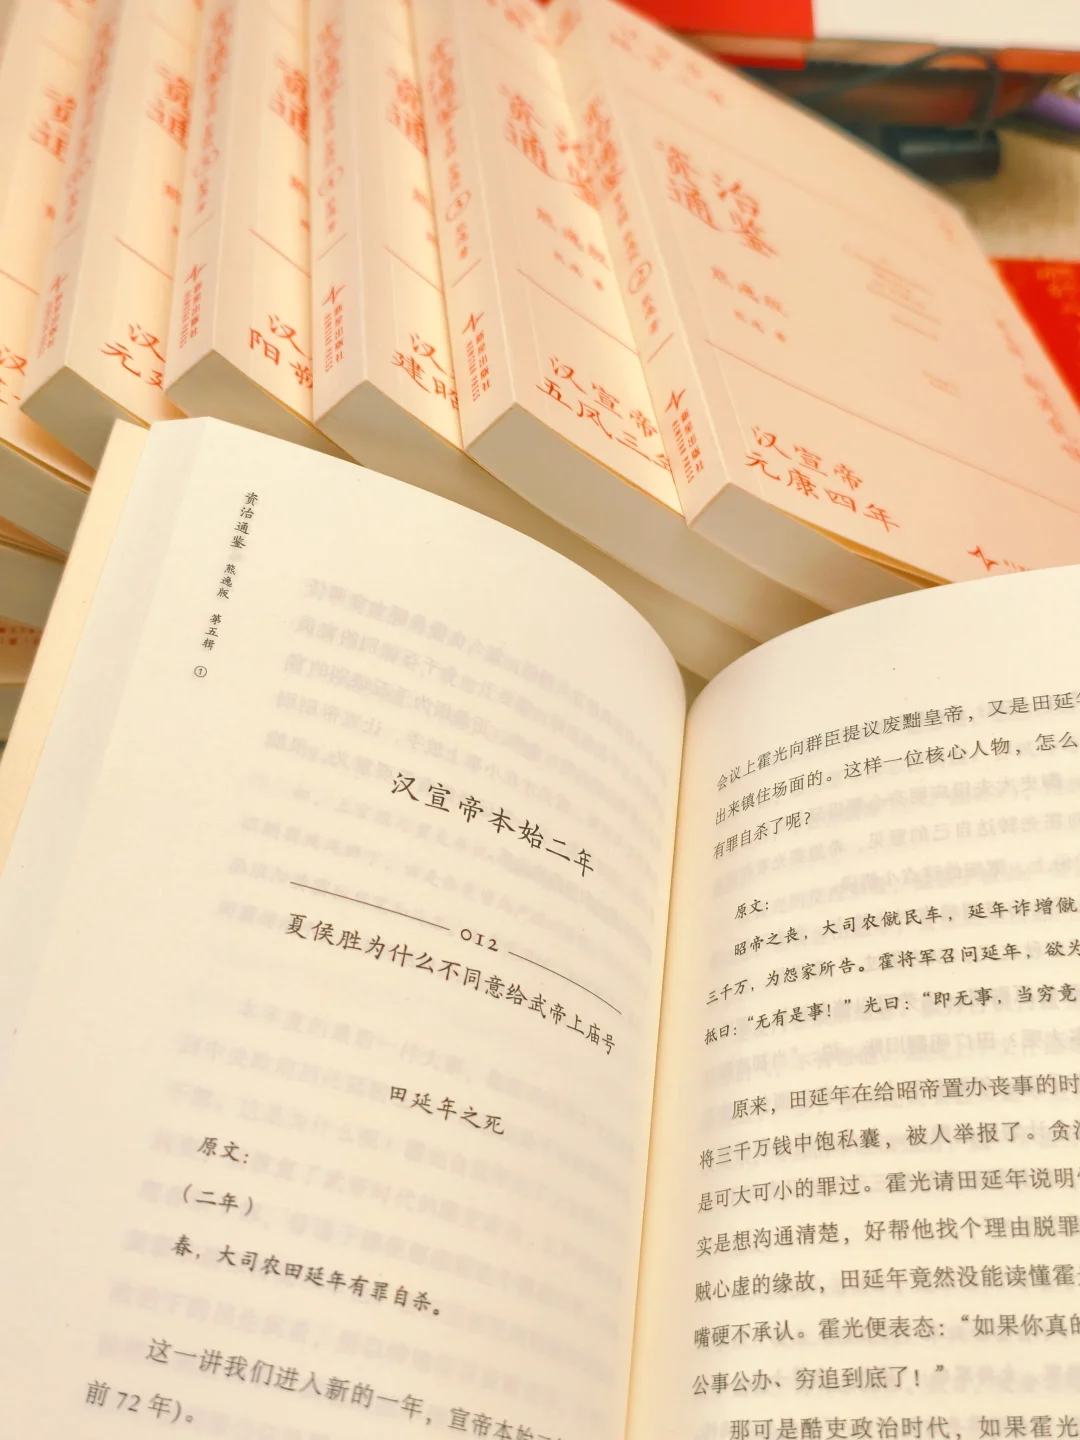 资治通鉴
熊逸版
汉宣帝
元康四年
资治通鉴
熊逸版
新星出版社
汉宣帝
五凤三年
新星出版社
汉
建昭
新星出版社
汉
阳朔
新星出版社
汉
元延
资治通鉴 熊逸版 第五辑 ①
汉宣帝本始二年
012
夏侯胜为什么不同意给武帝上庙号
田延年之死
原文：
（二年）
春，大司农田延年有罪自杀。
这一讲我们进入新的一年，宣帝本始
前 72 年)。
会议上霍光向群臣提议废黜皇帝，又是田延年
出来镇住场面的。这样一位核心人物，怎么
有罪自杀了呢？
原文：
昭帝之丧，大司农僦民车，延年诈增僦
三千万，为怨家所告。霍将军召问延年，欲为
抵曰：“无有是事！”光曰：“即无事，当穷竟
原来，田延年在给昭帝置办丧事的时
将三千万钱中饱私囊，被人举报了。贪
是可大可小的罪过。霍光请田延年说明
实是想沟通清楚，好帮他找个理由脱罪
贼心虚的缘故，田延年竟然没能读懂霍
嘴硬不承认。霍光便表态：“如果你真的
公事公办、穷追到底了！”
那可是酷吏政治时代，如果霍光